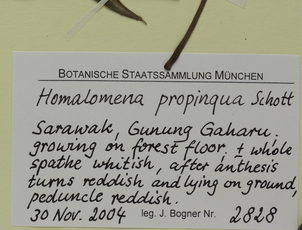 BOTANISCHE STAATSSAMMLUNG MÜNCHEN
Homalomena propinqua Schott
Sarawak, Gunung Gaharu.
growing on forest floor. ± whole
spathe whitish, after anthesis
turns reddish and lying on ground,
peduncle reddish.
30 Nov. 2004 leg. J. Bogner Nr. 2828